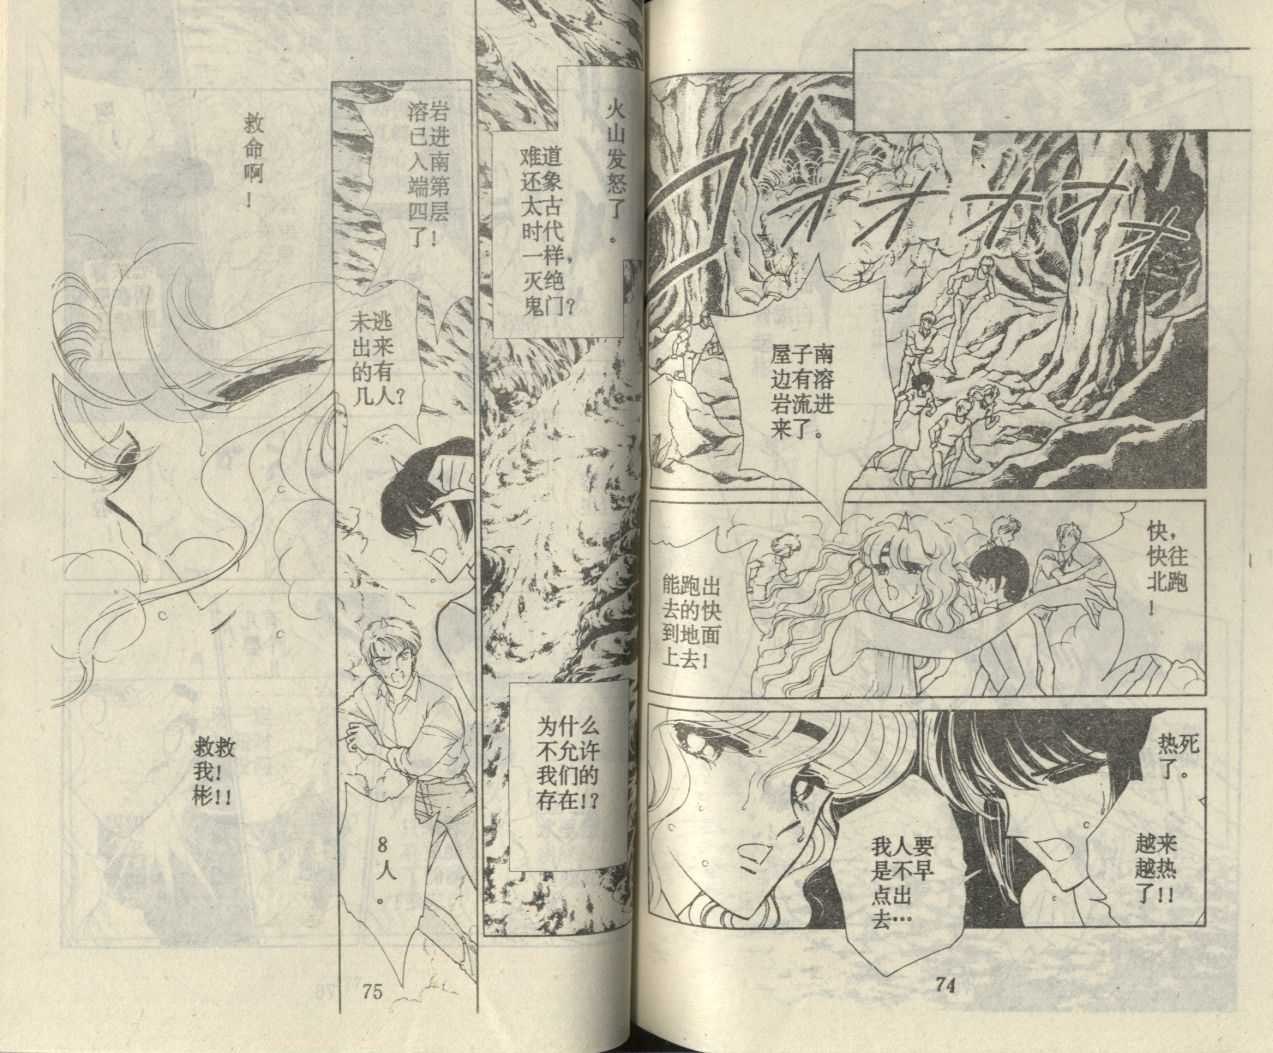 オオオオオ
屋子南
边有溶
岩流进
来了。
快,
快往
北跑
!
能跑出
去的快
到地面
上去!
热死
了。
越来
越热
了!!
我人要
是不早
点出
去…
74
火山发怒了。
难道
还象
太古
时代
一样,
灭绝
鬼门?
为什么
不允许
我们的
存在!?
溶岩
已进
入南
端第
四层
了!
未逃
出来
的有
几人?
8人。
救命啊!
救救
我!
彬!!
75